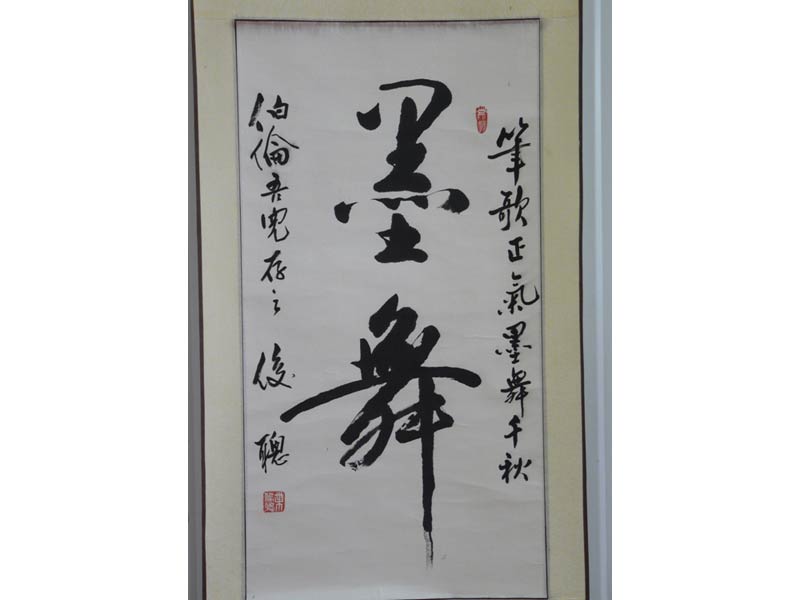 筆歌正氣墨舞千秋
墨舞
伯倫吾兒存之
俊聰